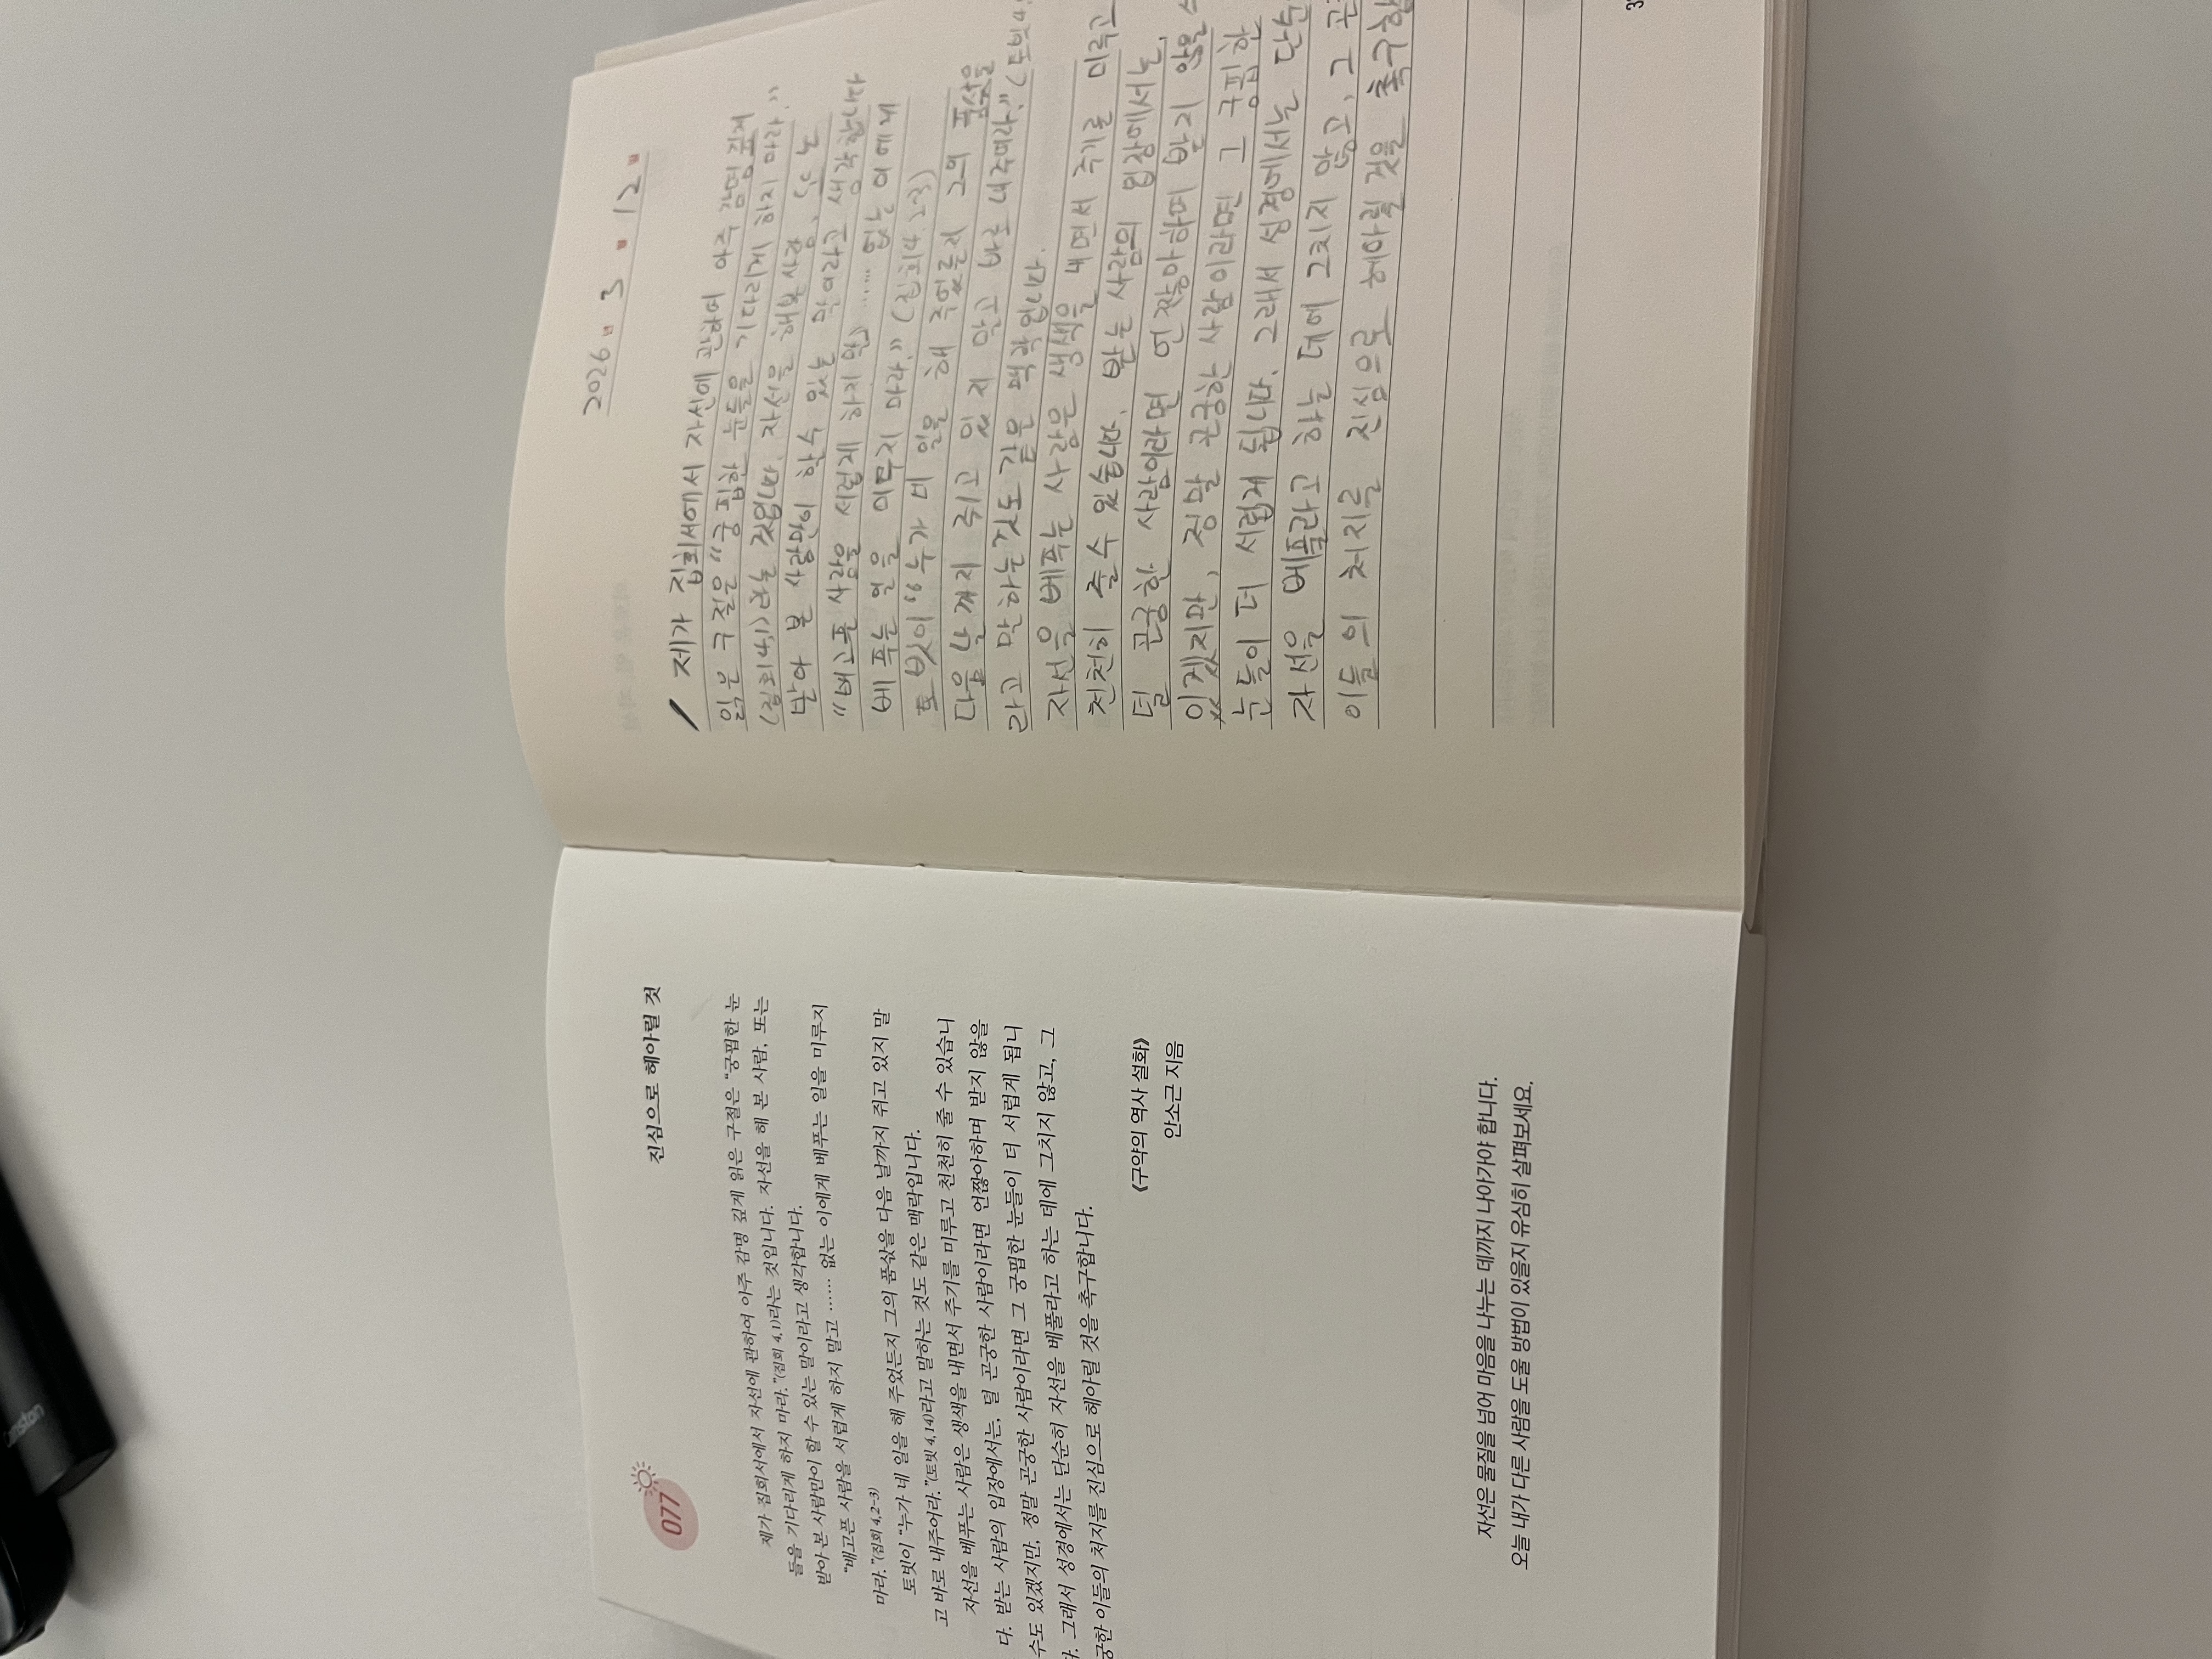 077
진심으로 헤아릴 것
제가 집회서에서 자선에 관하여 아주 감명 깊게 읽은 구절은 “궁핍한 눈
들을 기다리게 하지 마라.”(집회 4,1)라는 것입니다. 자선을 해 본 사람, 또는
받아 본 사람만이 할 수 있는 말이라고 생각합니다.
“배고픈 사람을 서럽게 하지 말고 …… 없는 이에게 베푸는 일을 미루지
마라.”(집회 4,2-3)
토빗이 “누가 네 일을 해 주었든지 그의 품삯을 다음 날까지 쥐고 있지 말
고 바로 내주어라.”(토빗 4,14)라고 말하는 것도 같은 맥락입니다.
자선을 베푸는 사람은 생색을 내면서 주기를 미루고 천천히 줄 수 있습니
다. 받는 사람의 입장에서는, 덜 곤궁한 사람이라면 언짢아하며 받지 않을
수도 있겠지만, 정말 곤궁한 사람이라면 그 궁핍한 눈들이 더 서럽게 됩니
다. 그래서 성경에서는 단순히 자선을 베풀라고 하는 데에 그치지 않고, 그
궁한 이들의 처지를 진심으로 헤아릴 것을 촉구합니다.
《구약의 역사 설화》
안소근 지음
자선은 물질을 넘어 마음을 나누는 데까지 나아가야 합니다.
오늘 내가 다른 사람을 도울 방법이 있을지 유심히 살펴보세요.
2026 3 12
제가 집회서에서 자선에 관하여 아주 감명 깊게
읽은 구절은 “궁핍한 눈들을 기다리게 하지 마라.”
(집회 4,1)라는 것입니다. 자선을 해본 사람, 또는
받아 본 사람만이 할 수 있는 말이라고 생각합니다
“배고픈 사람을 서럽게 하지 말고 …… 없는 이에게
베푸는 일을 미루지 마라.” (집회4.2-3)
토빗이 “누가 네 일을 해 주었든지 그의 품삯을
다음 날까지 쥐고 있지 말고 바로 내주어라.” (토빗 4,
라고 말하는것도 같은 맥락입니다.
자선을 베푸는 사람은 생색을 내면서 주기를 미루고
천천히 줄 수 있습니다. 받는 사람의 입장에서는,
덜 곤궁한 사람이라면 언짢아하며 받지 않을
있겠지만, 정말 곤궁한 사람이라면 그 궁핍한
눈들이 더 서럽게 됩니다. 그래서 성경에서는 단순
자선을 베풀라고 하는 데에 그치지 않고, 그 곤
이들의 처지를 진심으로 헤아릴 것을 촉구합